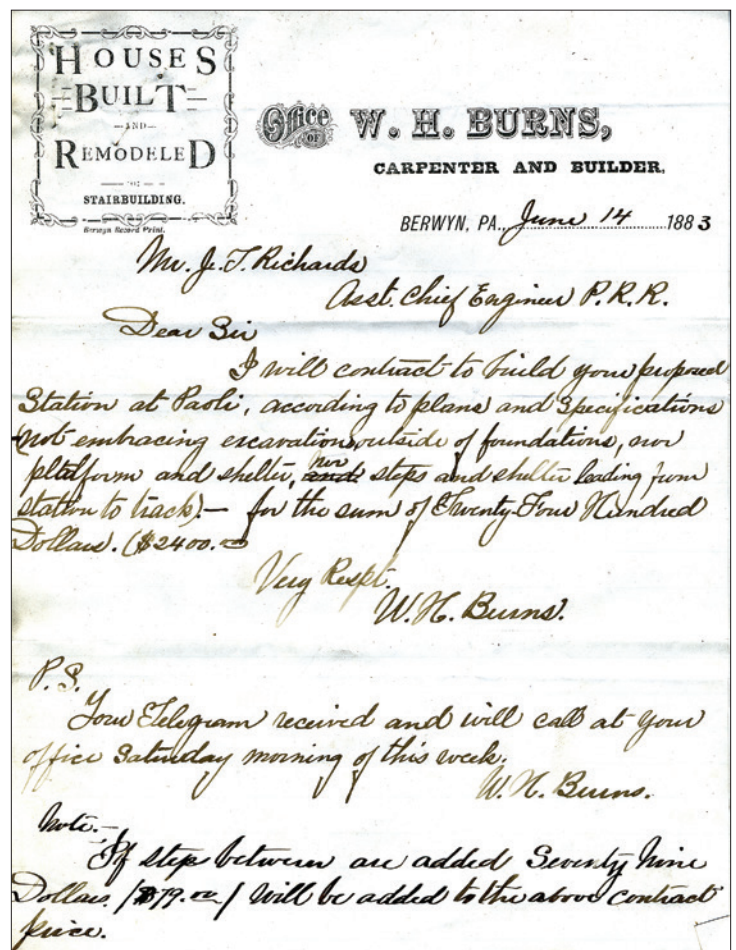 HOUSES
BUILT
—AND—
REMODELED
STAIRBUILDING.
Berwyn Record Print.
Office OF W. H. BURNS,
CARPENTER AND BUILDER,
BERWYN, PA. June 14 1883
Mr. J. T. Richards
Asst. Chief Engineer P. R. R.
Dear Sir
I will contract to build your proposed
Station at Paoli, according to plans and Specifications
(not embracing excavation outside of foundations, nor
platform and shelter, and nor steps and shelter leading from
station to track) — for the sum of Twenty-Four Hundred
Dollars. ($2400.00
Very Respt.
W. H. Burns.
P. S.
Your Telegram received and will call at your
office Saturday morning of this week.
W. H. Burns.
Note. —
If steps between are added Seventy Nine
Dollars / $79.00 / Will be added to the above contract
price.